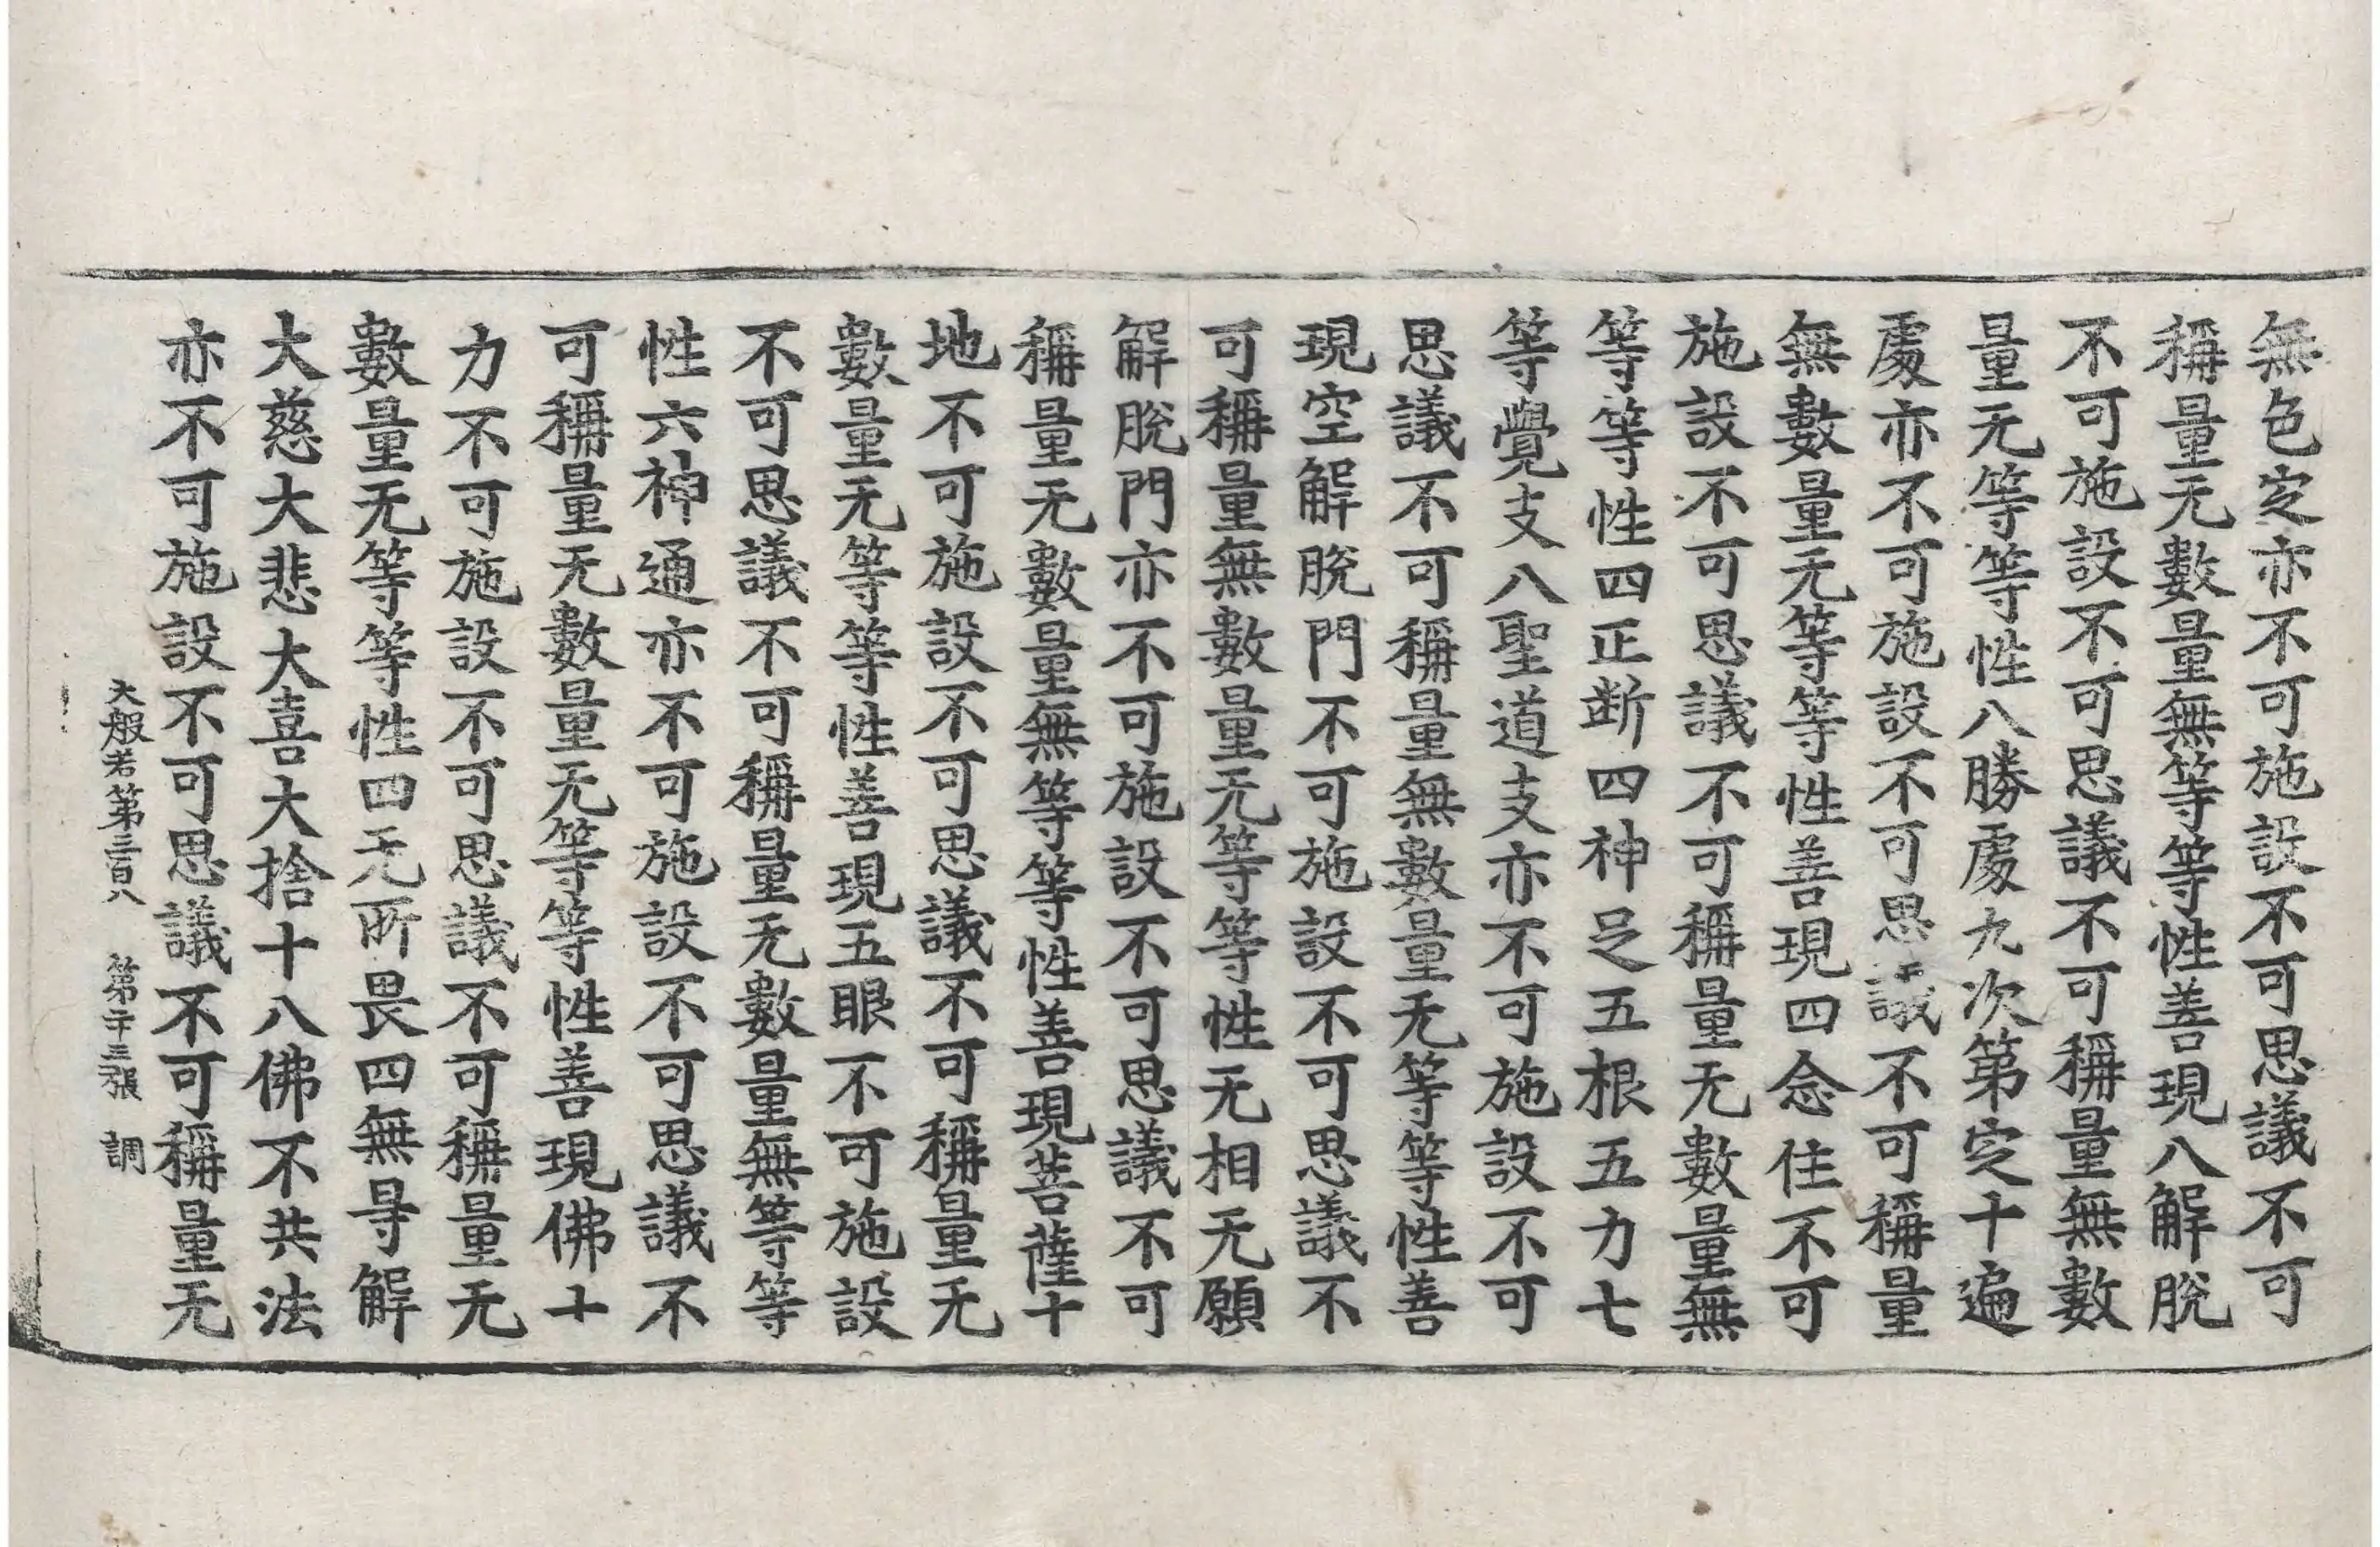 無色定亦不可施設不可思議不可
稱量无數量無等等性善現八解脫
不可施設不可思議不可稱量無數
量无等等性八勝處九次第定十遍
處亦不可施設不可思議不可稱量
無數量无等等性善現四念住不可
施設不可思議不可稱量无數量無
等等性四正斷四神足五根五力七
等覺支八聖道支亦不可施設不可
思議不可稱量無數量无等等性善
現空解脫門不可施設不可思議不
可稱量無數量无等等性无相无願
解脫門亦不可施設不可思議不可
稱量无數量無等等性善現菩薩十
地不可施設不可思議不可稱量无
數量无等等性善現五眼不可施設
不可思議不可稱量无數量無等等
性六神通亦不可施設不可思議不
可稱量无數量无等等性善現佛十
力不可施設不可思議不可稱量无
數量无等等性四无所畏四無㝵解
大慈大悲大喜大捨十八佛不共法
亦不可施設不可思議不可稱量无
大般若第三百八 第二十三張 調